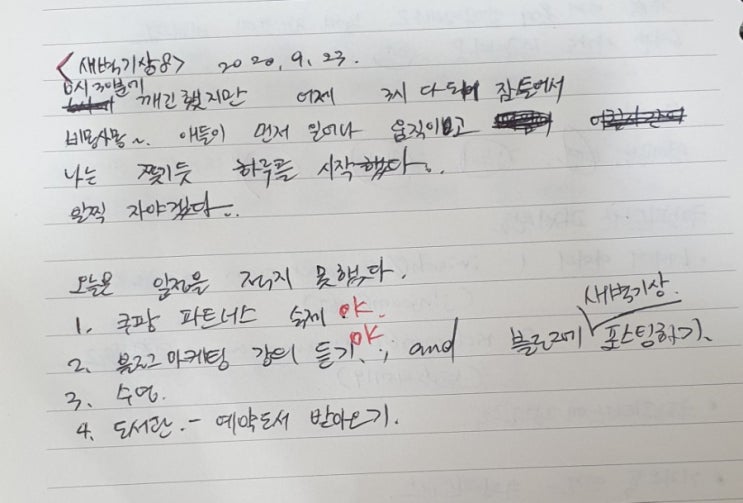 <새벽기상8> 2020. 9. 23.
6시 30분에
깨긴 했지만 어제 3시 다 되어 잠들어서
비몽사몽~. 애들이 먼저 일어나 움직이고
나는 쫓기듯 하루를 시작했다.
일찍 자야겠다~.
오늘은 일정을 적지 못했다.
1. 쿠팡 파트너스 숙제 OK.
2. 블로그 마케팅 강의 듣기. OK ; and 블로그에 새벽기상 포스팅하기.
3. 수영.
4. 도서관. - 예약도서 받아오기.